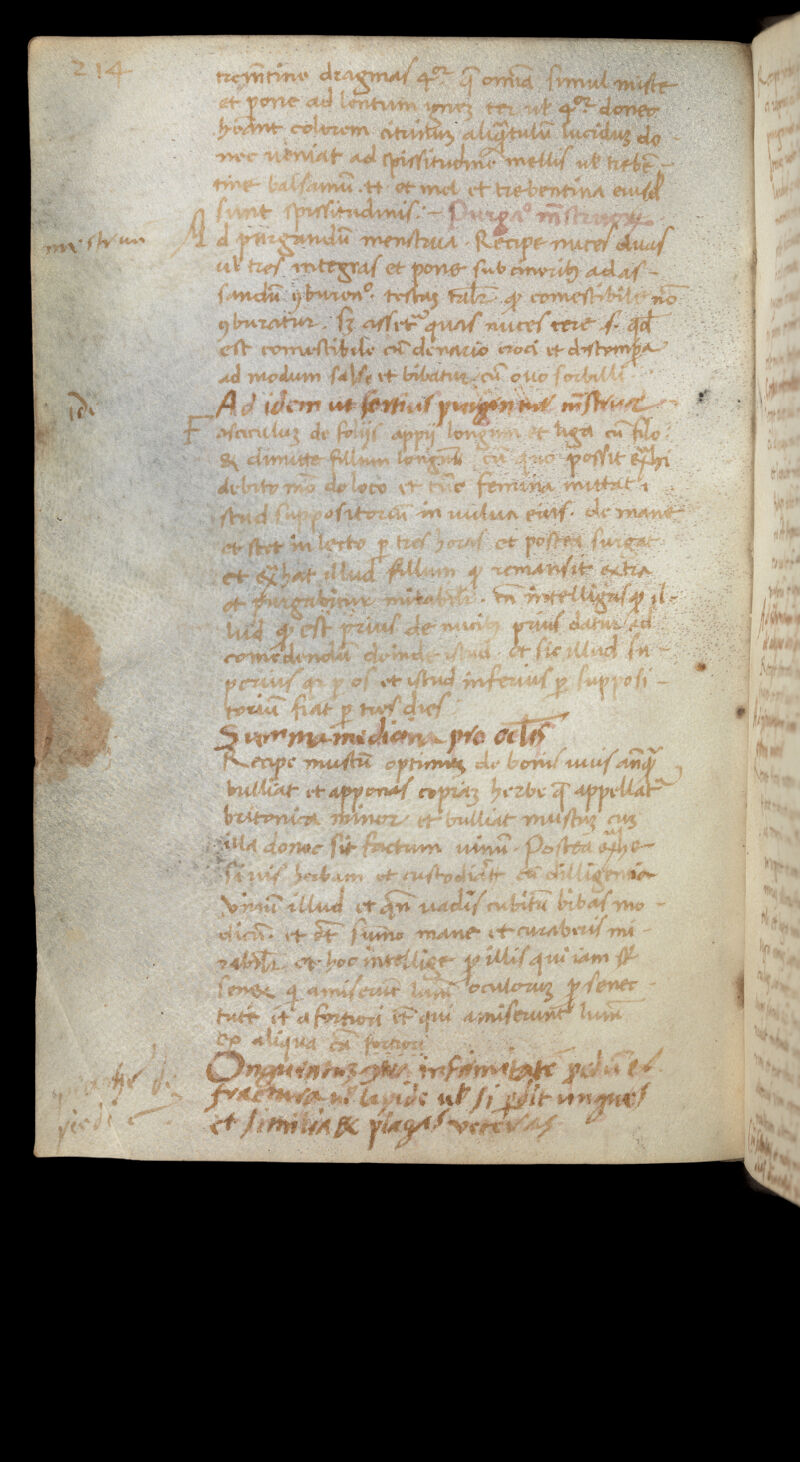 214
trem̄tine dragmas 4or. q̄ omīa simul misce
et pone ad lentum ignez ter ul' 4or. donec
hēant colorem citrinuz aliq̄tulū luciduz do-
nec ueniat ad spissitudinē mellis ul' trebē-
tine balsamū .tt. et mel et trebentina eiusd̄
sunt spissitudinis.- Purgao m̄struoꝝ
menstrua
Ad purgandū menstrua. Recipe nuces duas
ul' tres integras et pone sub cineribꝫ ad as-
sandū testaz talr̄. qd̄ comestibile nō
ꝯburatur. sꝫ assetr quas nuces tere s. qd̄
est comestibile cū denario croci et distempa
ad modum salse et bibatur. cū ouo sorbilli
idē
Ad idem ut fortius purgentur m̄strua
Fasciculuz de folijs appij longum et liga cū filo.
& dimitte fillum longū cū quo possit ext̄hi
debito mō de loco et tūc femina mittat i
stud suppositoriū in uulua eius. de mane
et stet in lecto p̄ tres horas et postea surgat
et ext̄hat illud fillum qd̄ remansit extra
et purgabitur mirabilr̄. tn̄ intelligas qd̄ il-
lud qd̄ est prius de nucibꝫ prius datur ad
comedendū deinde istud. et sic illud su-
perius p̄ os et istud inferius p̄ supposi-
torium fiat p̄ tres dies
Summa medicina pro oclis
Recipe mustū optimuz de bonis uuis
bulliat et apponas copiaz herbe q̄ appellatr
britonica minor et bulliat mustuz cuz
illa donec sit factum uinū. Postea
si uis herbam et custodiatr cū dilligentia
Vinū illud et qn̄ uadis cubitū bibas mo-
dicū. et de summo mane et curaberis mi-
rabilr̄. et hoc intellige qd̄ illis qui iam st̄
senes q̄ amiserūt lum̄ oculoruz p̄ senec-
tutē et a fortiori qui amiserunt lum̄
ex aliqua cā fortiori
piaghe di
piedi
Onguentuz ꝯtra infirmitatē pedū et
fractura ul' lapide ul' si pdit ungues
et similia & plagas veteras